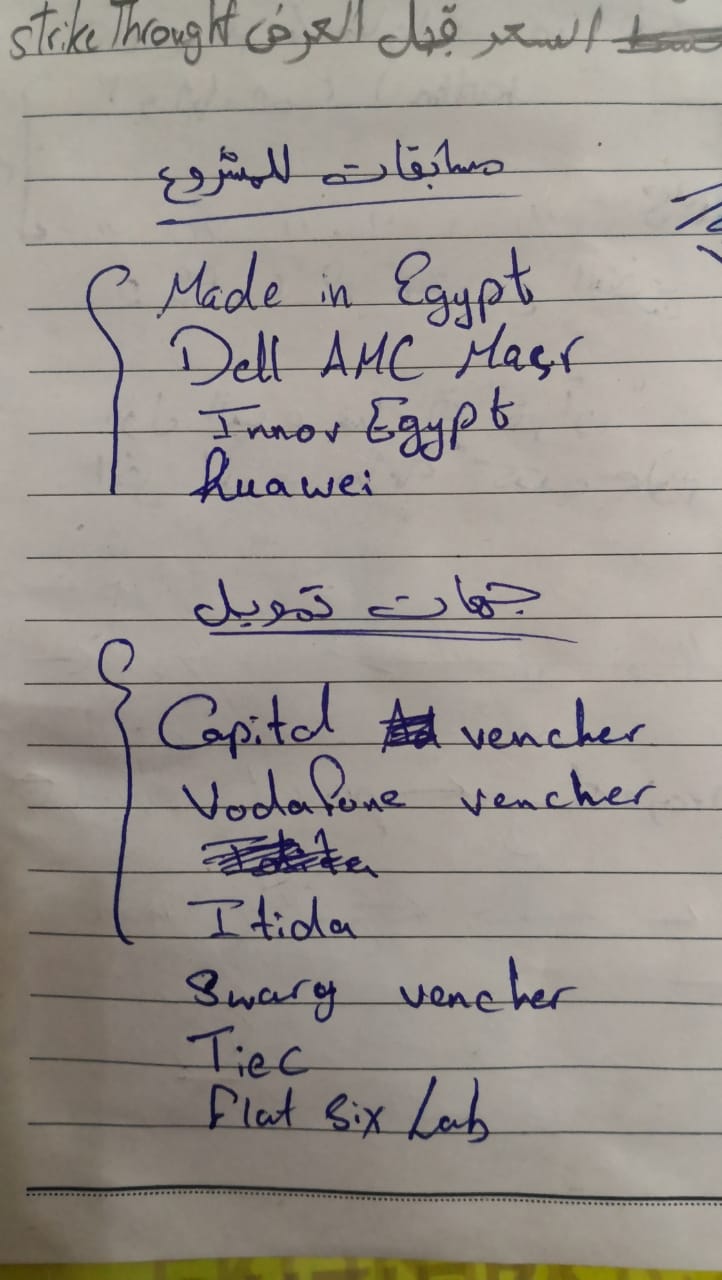 السعر قبل العرض strike Throught
مسابقات للمشروع
Made in Egypt
Dell AMC Masr
Innov Egypt
Huawei
جهات تمويل
Capital vencher
Vodafone vencher
Itida
Swarg vencher
Tiec
Flat six Lab